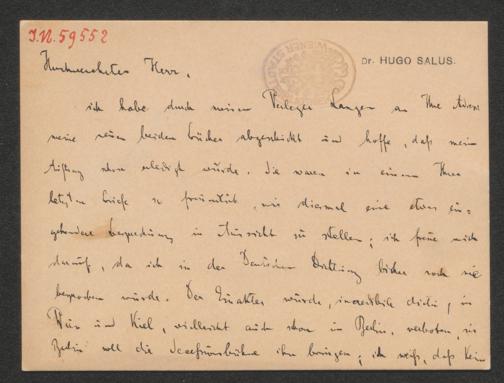 J.N. 59552
Dr. HUGO SALUS.
Hochverehrter Herr,
ich habe durch meinen Verleger Langen an Ihre Adresse
meine neuen beiden Bücher abgeschickt und hoffe, daß mein
Auftrag schon erledigt wurde. Sie waren in einem Ihrer
letzten Briefe so freundlich, mir diesmal eine etwas ein-
gehendere Besprechung in Aussicht zu stellen; ich freue mich
darauf, da ich in der Deutschen Dichtung bisher noch nie
besprochen wurde. Der Einakter wurde, incredibile dictu, in
Wien und Kiel, vielleicht auch schon in Berlin, verboten, in
Berlin will die Secessionsbühne ihn bringen; ich weiß, daß kein